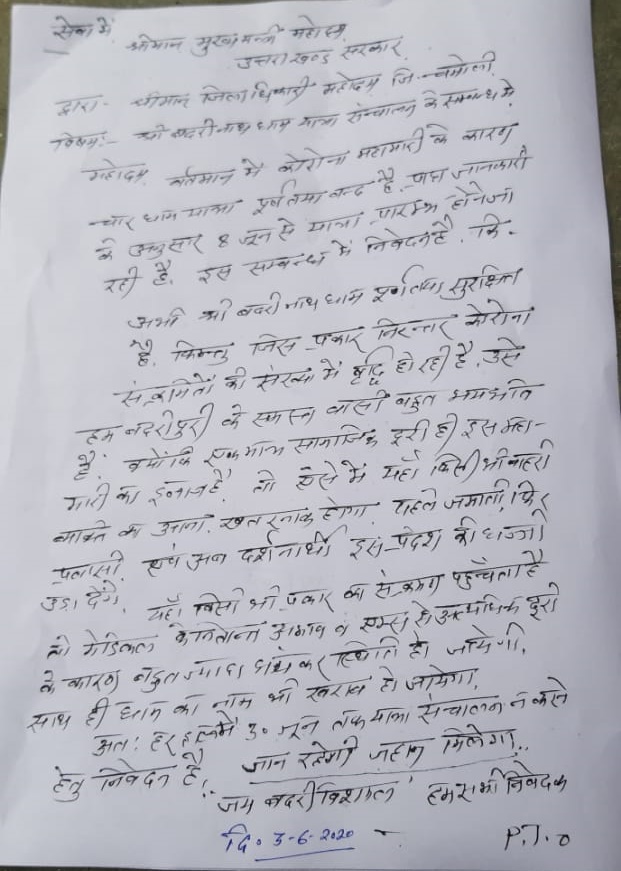 सेवा में,
श्रीमान मुख्यमन्त्री महोदय,
उत्तराखण्ड सरकार,
द्वारा- श्रीमान जिलाधिकारी महोदय जि-चमोली,
विषय:- श्री बदरीनाथ धाम यात्रा संचालन के सम्बन्ध में
महोदय, वर्तमान में कोरोना महामारी के कारण
चार धाम यात्रा पूर्णतया बन्द है, प्राप्त जानकारी
के अनुसार 8 जून से यात्रा प्रारम्भ होने जा
रही है, इस सम्बन्ध में निवेदन है, कि-
अभी श्री बदरीनाथ धाम पूर्णतया सुरक्षित
है, किन्तु जिस प्रकार निरन्तर कोरोना
संक्रमितों की संख्या में वृद्धि हो रही है, उसे
हम बदरीपुरी के समस्त वासी बहुत भयभीत
हैं, क्योंकि एकमात्र सामाजिक दूरी ही इस महा-
मारी का इलाज है, तो ऐसे में यहाँ किसी भी बाहरी
व्यक्ति का आना, खतरनाक होगा, पहले जमाती, फिर
प्रवासी, एवं अब दर्शनार्थी इस प्रदेश की धज्जी
उड़ा देंगे, यहाँ किसी भी प्रकार का संक्रमण पहुँचता है
तो मेडिकल के नितान्त अभाव व एम्स से अत्यधिक दूरी
के कारण बहुत ज्यादा भयंकर स्थिति हो जायेगी,
साथ ही धाम का नाम भी खराब हो जायेगा,
अत: हर हाल में 30 जून तक यात्रा संचालन न करने
हेतु निवेदन है। जान रहेगी जहान मिलेगा,,
जय बदरी विशाल हम सभी निवेदक
दि० 3-6-2020 P.T.O